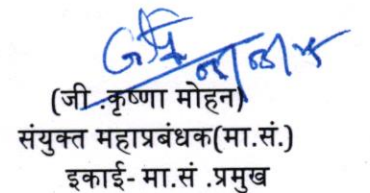 (जी .कृष्णा मोहन)
संयुक्त महाप्रबंधक(मा.सं.)
इकाई- मा.सं .प्रमुख